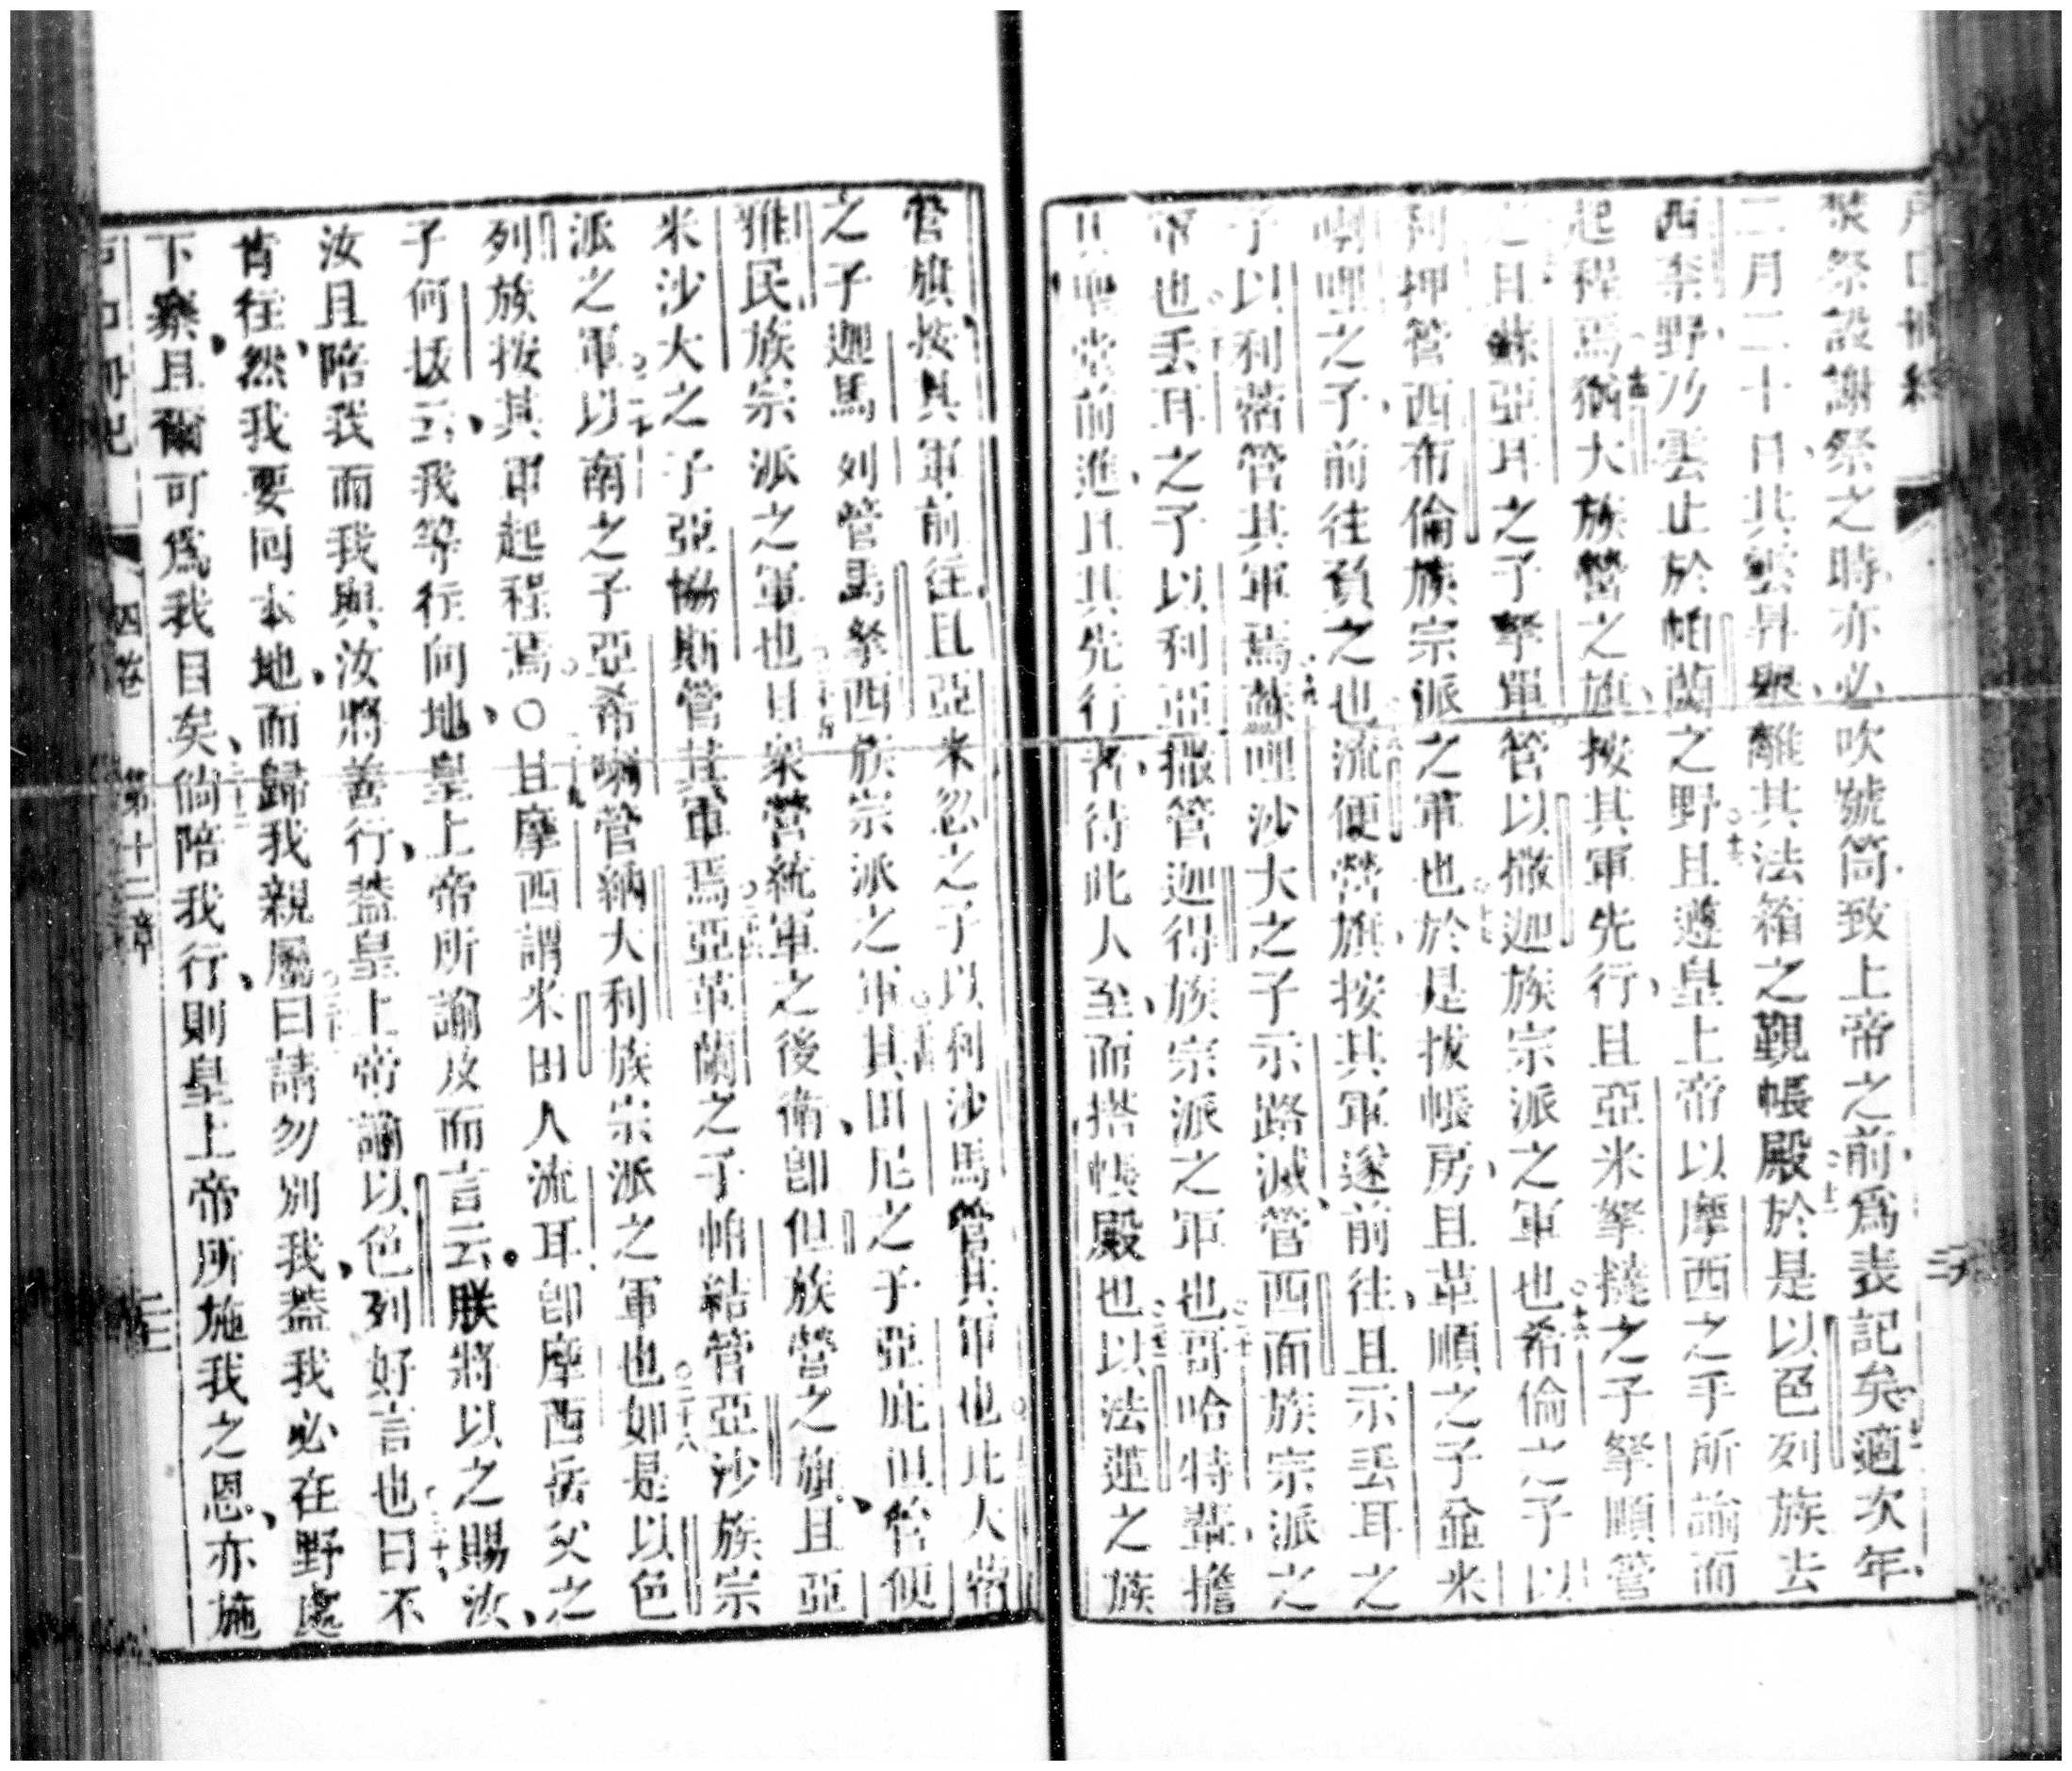 焚祭設謝祭之時亦必吹號筒致上帝之前爲表記矣適次年
二月二十日其雲昇與離其法箱之覲帳殿於是以色列族去
西奈野乃雲止於帕蘭之野且遵皇上帝以摩西之手所諭而
起程焉猶大族營之旗按其軍先行且亞米拏撻之子拏順管
之且蘇亞耳之子拏單管以撒迦族宗派之軍也希倫之子以
利押管西布倫族宗派之軍也於是拔帳房且革順之子並米
喇哩之子前往負之也流便營旗按其軍遂前往且示丟耳之
子以利蓿管其軍焉蘇哩沙大之子示路滅管西面族宗派之
軍也丟耳之子以利亞撒管迦得族宗派之軍也哥哈特輩擔
其聖堂前進且其先行者待此人至而搭帳殿也以法蓮之族
管旗按其軍前往且亞米忽之子以利沙馬管其軍也比大蓿
之子迦馬列管馬拏西族宗派之軍其田尼之子亞庇但管便
雅民族宗派之軍也且衆營統軍之後衛卽但族營之旗且亞
米沙大之子亞協斯管其軍焉亞革蘭之子帕結管亞沙族宗
派之軍以南之子亞希喇管納大利族宗派之軍也如是以色
列族按其軍起程焉〇且摩西謂米田人流耳卽摩西岳父之
子何垓云我等行向地皇上帝所諭及而言云朕將以之賜汝
汝且陪我而我與汝將善行葢皇上帝諭以色列好言也曰不
肯往然我要回本地而歸我親屬曰請勿別我葢我必在野處
下寨且爾可爲我目矣倘陪我行則皇上帝所施我之恩亦施
四卷 第十二章